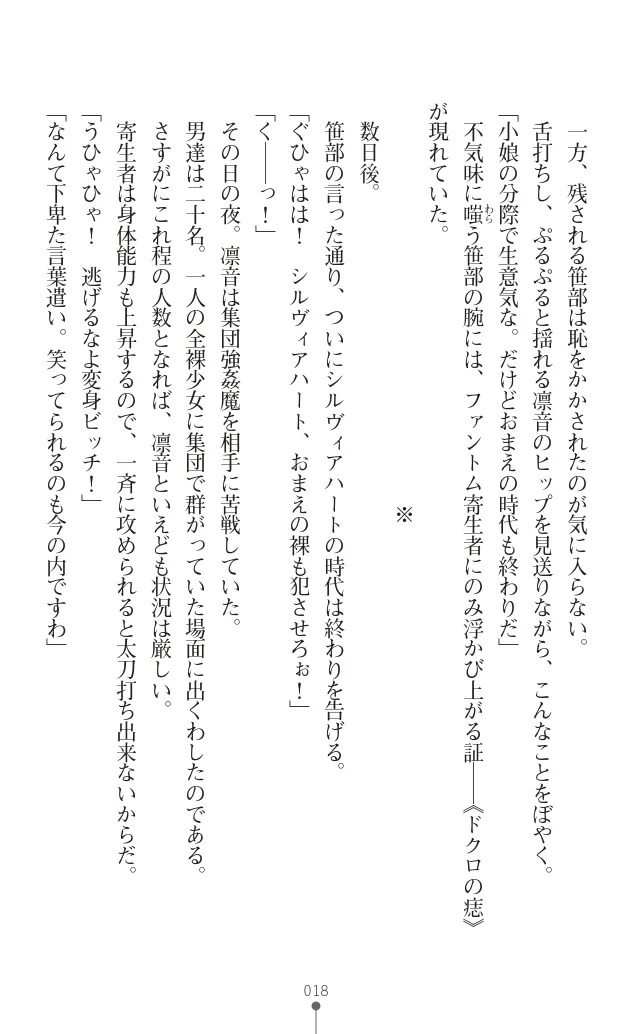 一方、残される笹部は恥をかかされたのが気に入らない。
舌打ちし、ぷるぷると揺れる凛音のヒップを見送りながら、こんなことをぼやく。
「小娘の分際で生意気な。だけどおまえの時代も終わりだ」
不気味に嗤わらう笹部の腕には、ファントム寄生者にのみ浮かび上がる証――《ドクロの痣》
が現れていた。
※
数日後。
笹部の言った通り、ついにシルヴィアハートの時代は終わりを告げる。
「ぐひゃはは！　シルヴィアハート、おまえの裸も犯させろぉ！」
「く――っ！」
その日の夜。凛音は集団強姦魔を相手に苦戦していた。
男達は二十名。一人の全裸少女に集団で群がっていた場面に出くわしたのである。
さすがにこれ程の人数となれば、凛音といえども状況は厳しい。
寄生者は身体能力も上昇するので、一斉に攻められると太刀打ち出来ないからだ。
「うひゃひゃ！　逃げるなよ変身ビッチ！」
「なんて下卑た言葉遣い。笑ってられるのも今の内ですわ」
018